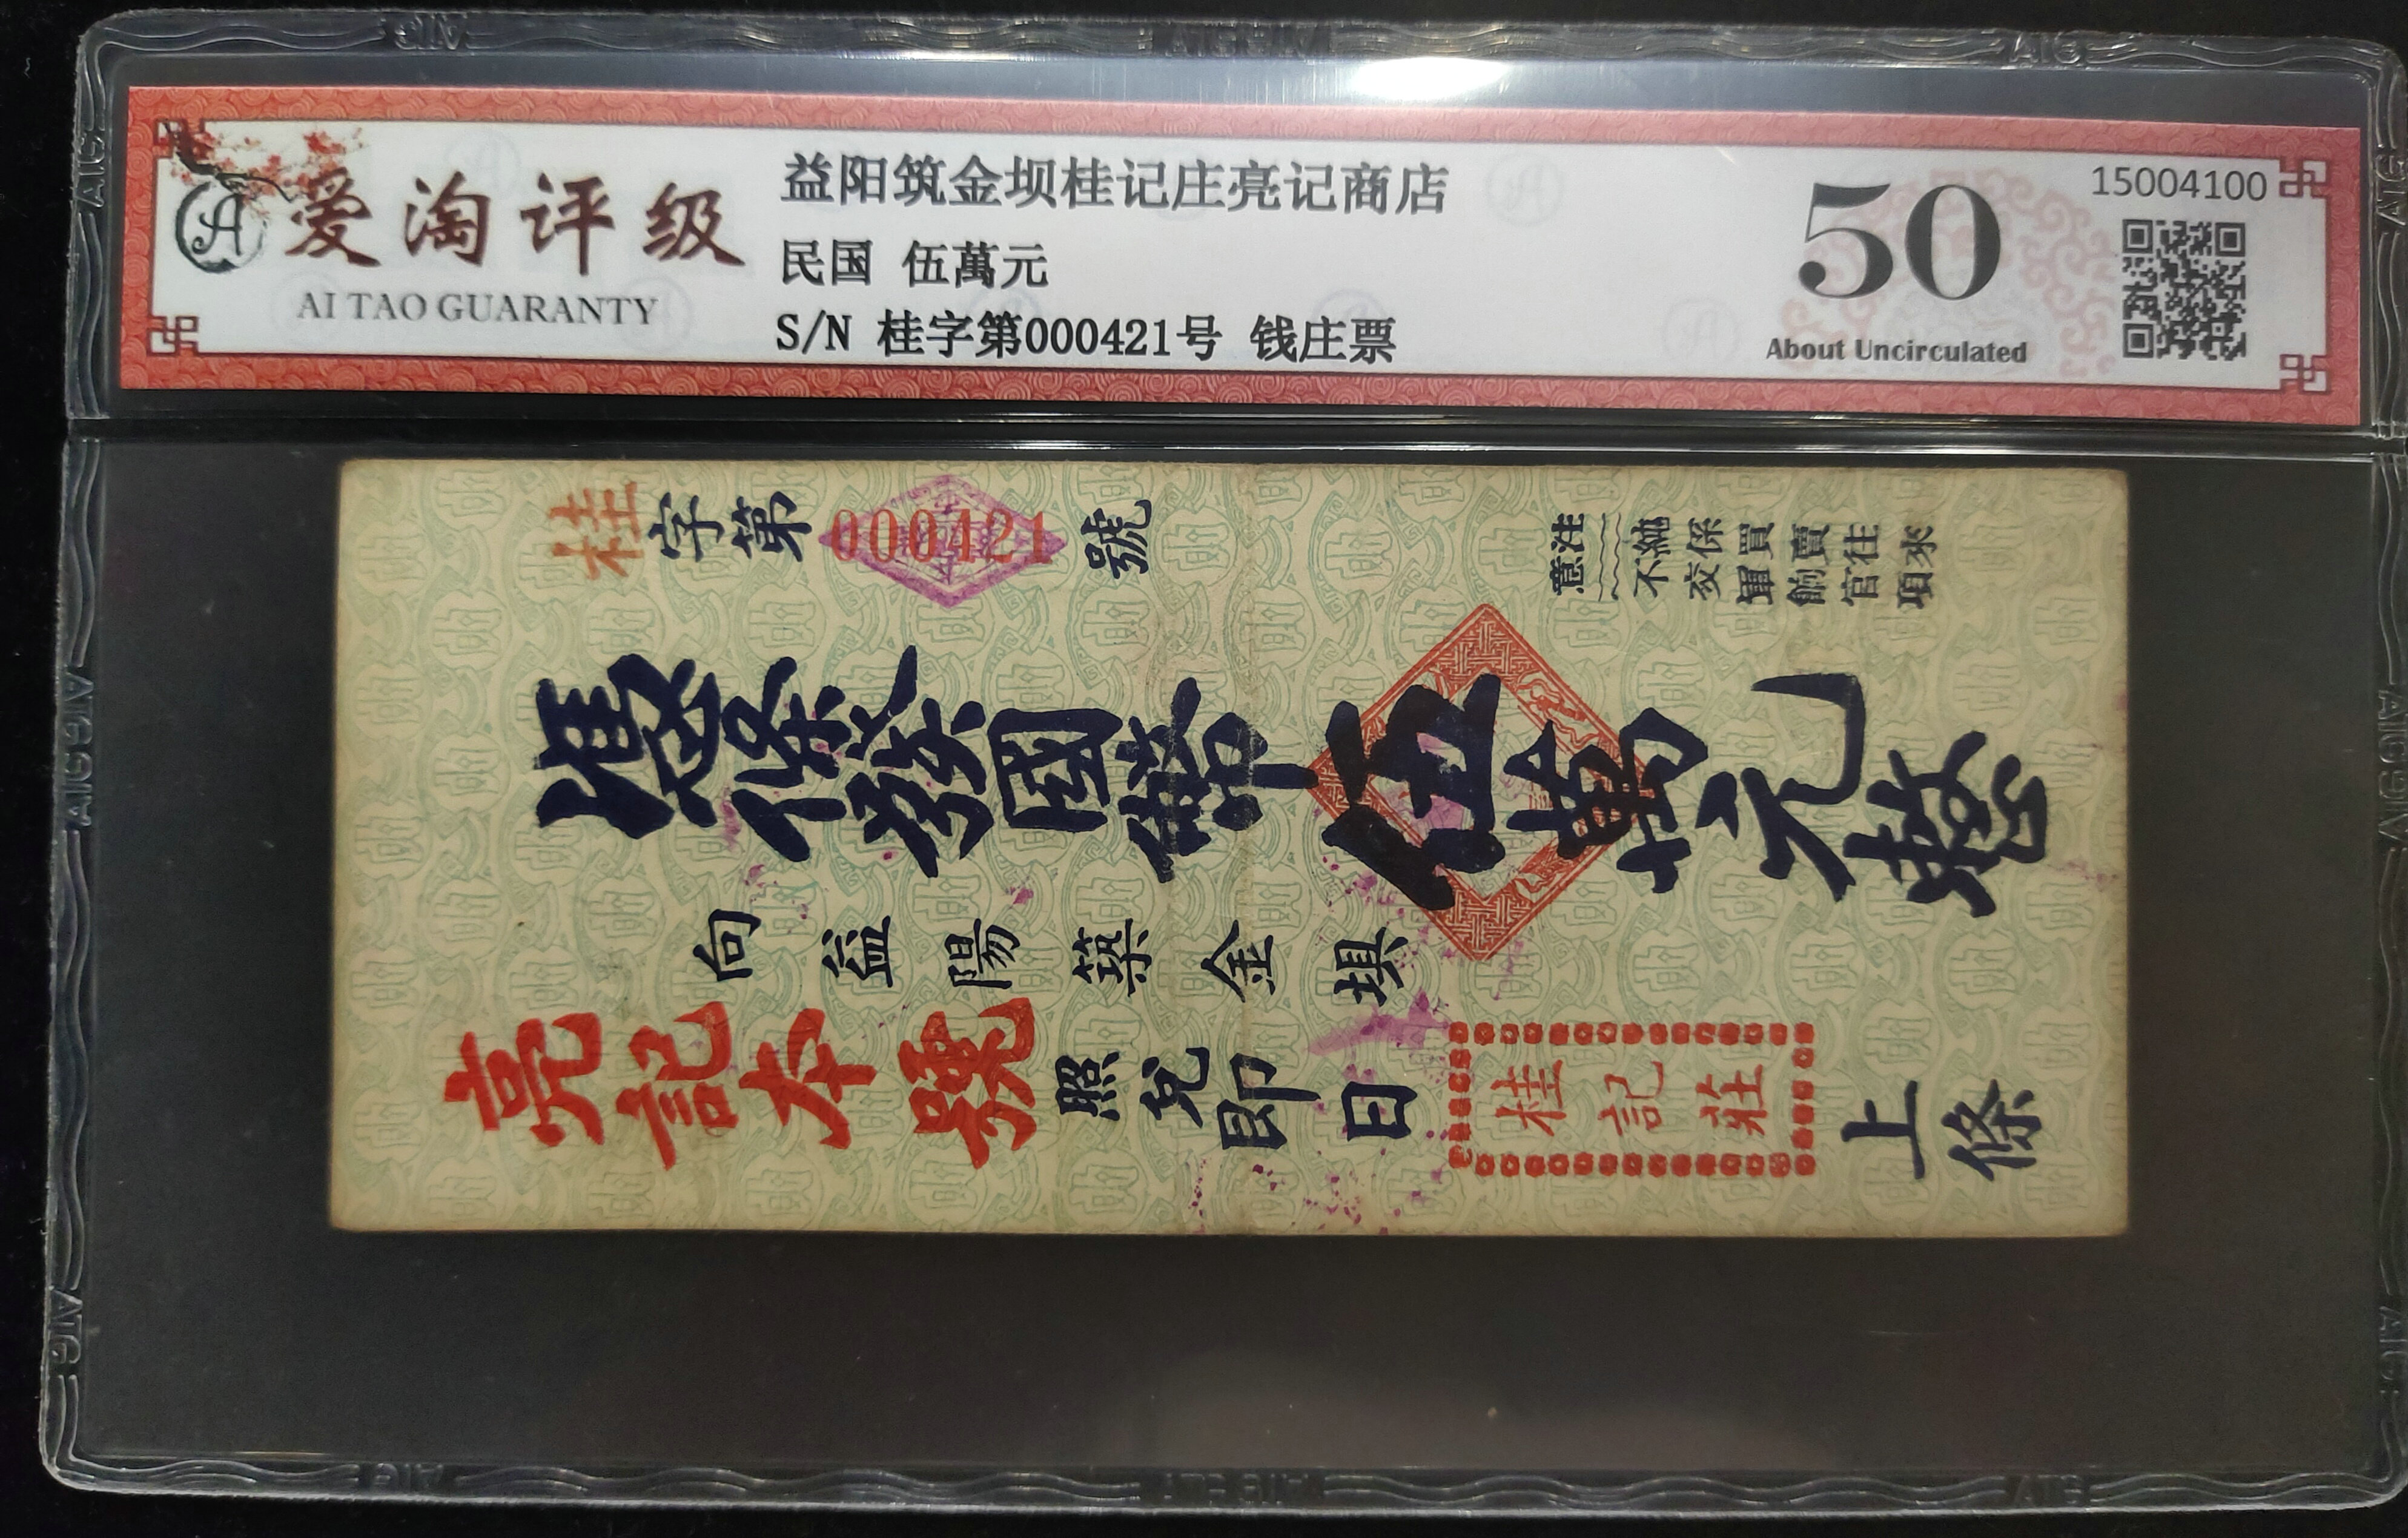 爱淘评级
AI TAO GUARANTY
益阳筑金坝桂记庄亮记商店
民国 伍萬元
S/N 桂字第000421号 钱庄票
50
About Uncirculated
15004100
桂字第000421號
注意
純係買賣往來
不交軍餉官項
憑條發國幣伍萬元整
向益陽築金垻
亮記本號照兌即日桂記莊上條